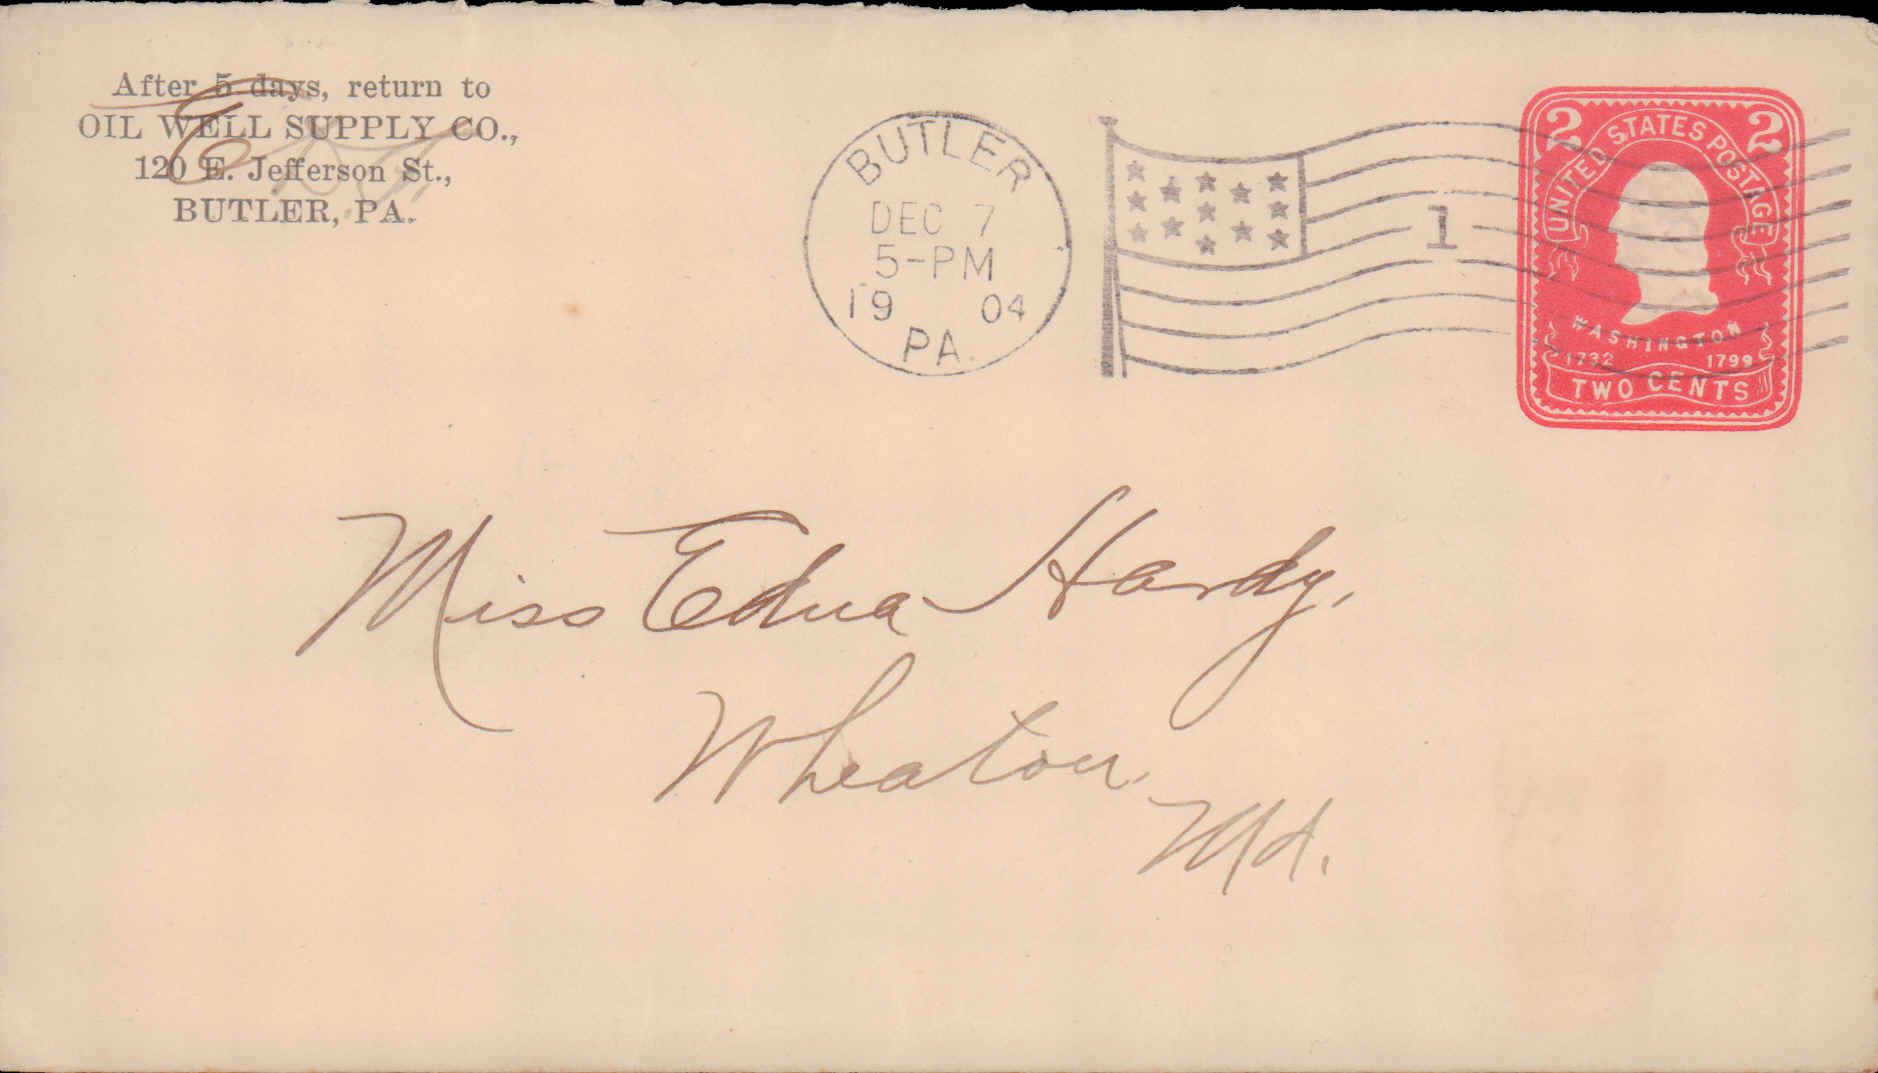 After 5 days, return to
OIL WELL SUPPLY CO.,
120 E. Jefferson St.,
BUTLER, PA.
BUTLER
DEC 7
5-PM
19 04
PA.
1
2 2
UNITED STATES POSTAGE
WASHINGTON
1732 1799
TWO CENTS
Miss Edna Hardy,
Wheaton
Md.